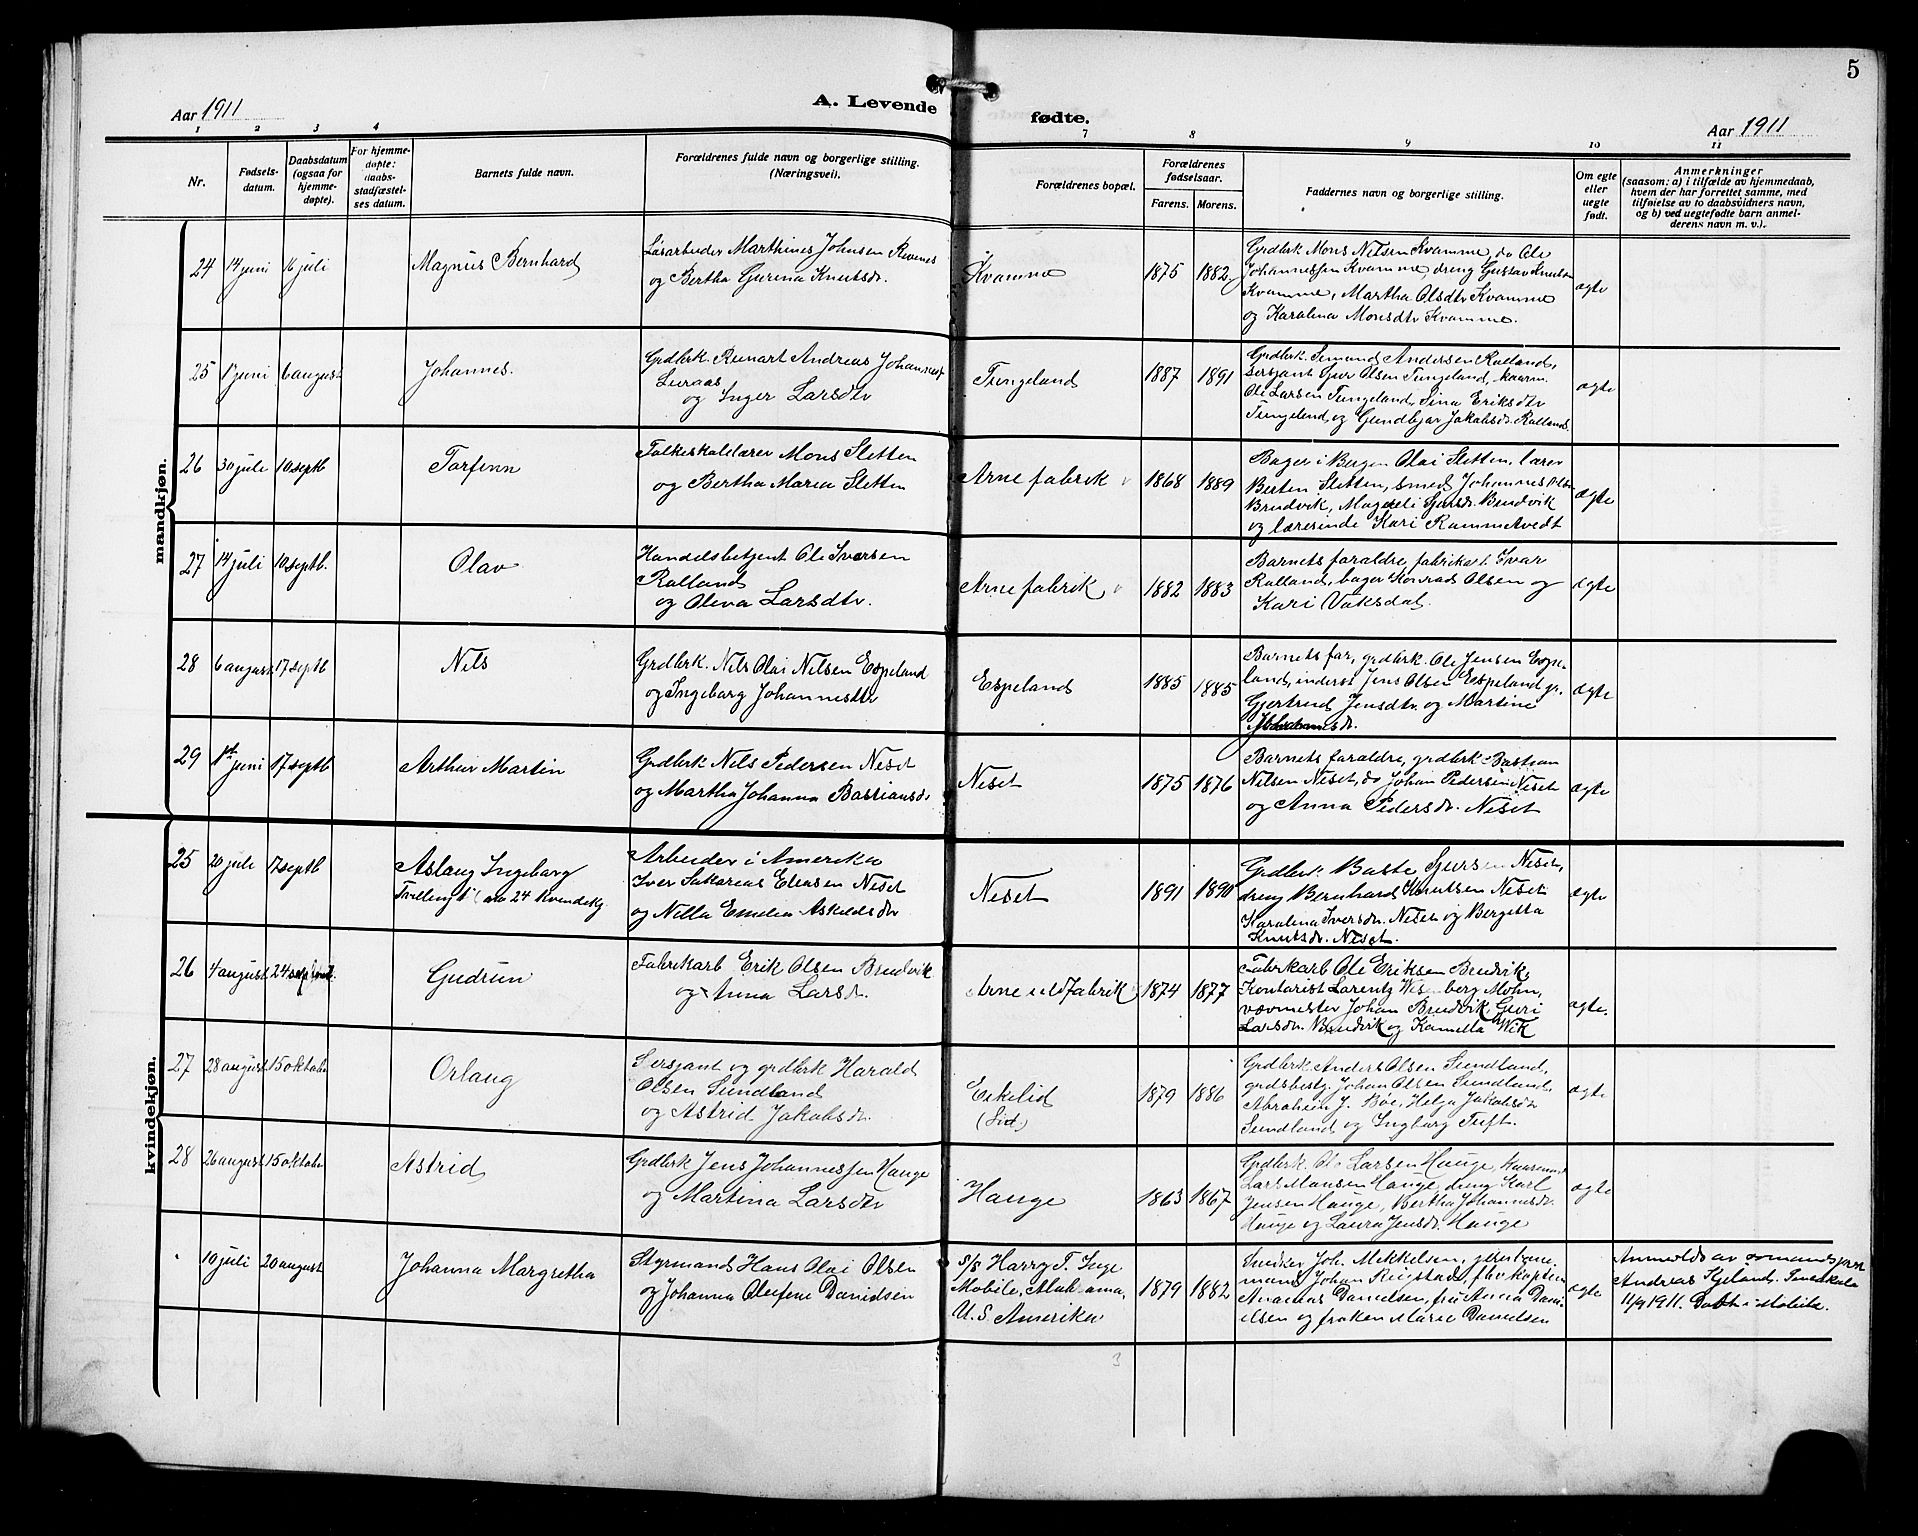 5
Aar 1911
A. Levende fødte.
Aar 1911
1 2 3 4 7 8 9 10 11
Nr.
Fødsels-
datum.
Daabsdatum
(ogsaa for
hjemme-
døpte).
For hjemme-
døpte:
daabs-
stadfæstel-
ses datum.
Barnets fulde navn.
Forældrenes fulde navn og borgerlige stilling.
(Næringsvei).
Forældrenes bopæl.
Forældrenes
fødselsaar.
Farens. Morens.
Faddernes navn og borgerlige stilling.
Om egte
eller
uegte
født.
Anmerkninger
(saasom: a) i tilfælde av hjemmedaab,
hvem der har forrettet samme, med
tilføielse av to daabsvidners navn,
og b) ved uegtefødte barn anmel-
derens navn m. v.).
mandkjøn.
24 14 juni 16 juli
Magnus Bernhard
Løsarbeider Marthines Johnsen Revnes
og Bertha Gurina Knutsdr.
Kvamme
1875 1882
Grdbrk Mons Nilsen Kvamme, do Ole
Johannessen Kvamme, dreng Gustav Knutsen
Kvamme, Martha Olsdtr Kvamme
og Karolina Monsdtr Kvamme.
ægte
25 1 juni 6 august
Johannes.
Grdbrk. Andreas
og Inger Larsdtr
Tungeland
1887 1891
Grdbrk. Simund Andersen Rolland,
sersjant Sjur Olsen Tungeland,
Ole Larsen Tungeland, Sina Eriksdtr
Tungeland, og Jakobsdr. Rolland
ægte
26 30 juli 10 septb
Torfinn
Folkeskolelærer Mons Sletten
og Bertha Maria Sletten
Arne fabrik
1868 1889
Bager i Bergen Olai Sletten, lærer
Berten Sletten, smed Johannes Olsen
Brudvik, Sjursdr. Brudvik
og lærerinde Kari Rammetvedt
ægte
27 14 juli 10 septb.
Olav
Handelsbetjent Ole Iversen
Rolland
og Oleva Larsdtr.
Arne fabrik
1882 1883
Barnets foraldre, fabrikarb. Ivar
Rolland, bager Konrad Olsen og
Kari Vaksdal.
ægte
28 6 august 17 septb
Nils
Grdbrk. Nils Olai Nilsen Espeland
og Ingeborg Johannesdtr
Espeland
1885 1885
Barnets far, grdbrk. Ole Jensen Espe-
land, inderst Jens Olsen Espeland,
Gjertrud Jensdtr. og Martine
ægte
29 1ste juni 17 septb
Arthur Martin
Grdbrk Nils Pedersen Neset
og Martha Johanna Bastiansdr.
Neset
1875 1876
Barnets foraldre, grdbrk Bastian
Nilsen Neset, do Johan Pedersen Neset
og Anna Pedersdr. Neset
ægte
kvindekjøn.
25 20 juli 17 septb
Aslaug Ingeborg
Tvilling til no 24 kvindekj
Arbeider i Amerika
Iver Sakarias Eliasen Neset
og Nilla Emilia Askildsdtr
Neset
1891 1890
Grdbrk Baste Sjursen Neset,
dreng Bernhard Knutsen Neset
Karolina Iversdr. Neset og Bergetta
Knutsdr. Neset.
ægte
26 4 august 24 septemb.
Gudrun
Fabrikarb Erik Olsen Brudvik
og Anna Larsdr.
Arne uldfabrik
1874 1877
Fabrikarb Ole Eriksen Brudvik,
kontorist Lorentz Wesenberg Mohn,
vævmester Johan Brudvik, Guri
Larsdr. Brudvik og Kamilla Wik
ægte.
27 28 august 15 oktober
Orlaug
Sersjant og grdbrk Harald
Olsen Sundland
og Astrid Jakobsdr.
Eskelid
(Lid)
1879 1886
Grdbrk Anders Olsen Sundland,
grdsbestyr. Johan Olsen Sundland,
Abraham J. Bøe, Helga Jakobsdr
Sundland og Ingborg Tuft.
ægte
28 26 august 15 oktober
Astrid
Grdbrk Jens Johannessen Hauge
og Martina Larsdtr
Hauge
1863 1867
Grdbrk. Ole Larsen Hauge,
Lars Monsen Hauge, dreng Karl
Jensen Hauge, Bertha Johannesdr.
Hauge og Laura Jensdr. Hauge
ægte
" 10 juli 20 august
Johanna Margretha
Styrmand Hans Olai Olsen
og Johanna Olefine Danielsen
S/S Harry T. Inge
Mobile, Alabama,
U. S. Amerika
1879 1882
Joh. Mikkelsen,
mand Johan Reigstad, kaptein
Andreas Danielsen, fru Anna Dani-
elsen og frøken Marie Danielsen
ægte
Anmeldt av sømandsprest
Andreas Pensakola
11/9 1911. Døbt i Mobile.
3